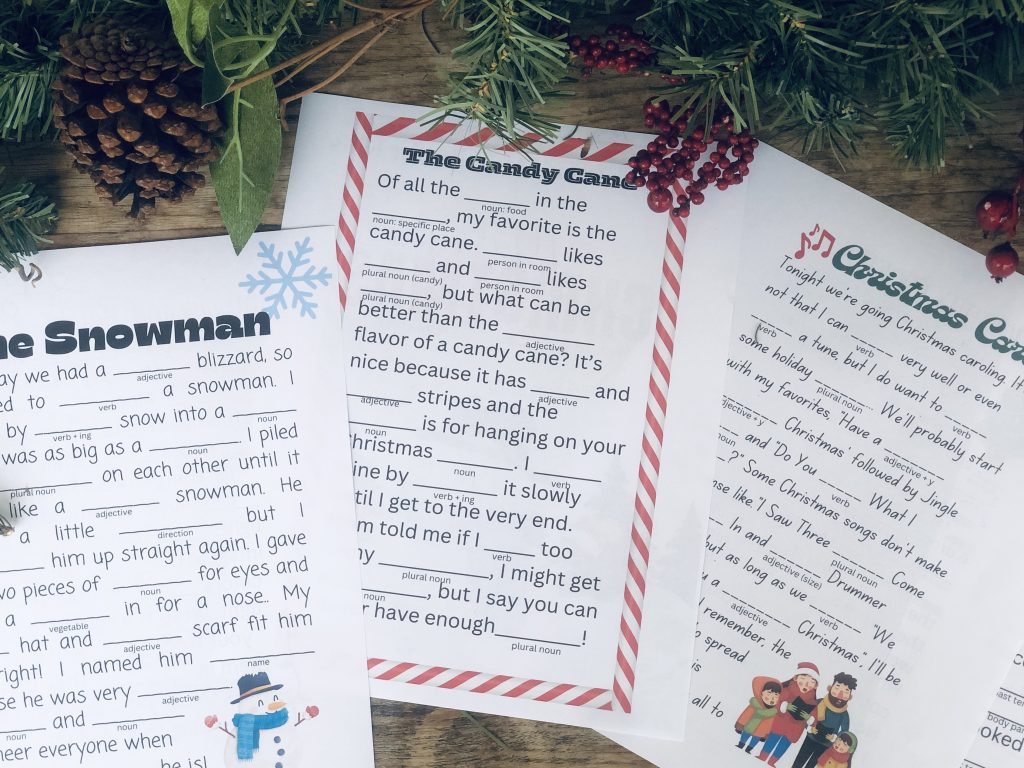 The Snowman
ay we had a ________ blizzard, so
adjective
ed to ________ a snowman. I
verb
by ________ snow into a ________
verb + ing noun
was as big as a ________. I piled
noun
________ on each other until it
plural noun
like a ________ snowman. He
adjective
a little ________ but I
direction
________ him up straight again. I gave
wo pieces of ________ for eyes and
noun
a ________ in for a nose.. My
vegetable
hat and ________ scarf fit him
adjective
right! I named him ________
name
se he was very ________
adjective
________ and ________
noun noun
heer everyone when
he is!
The Candy Cane
Of all the ________ in the
noun: food
________, my favorite is the
noun: specific place
candy cane. ________ likes
person in room
________ and ________ likes
plural noun (candy) person in room
________, but what can be
plural noun (candy)
better than the ________
adjective
flavor of a candy cane? It's
nice because it has ________ and
adjective
________ stripes and the
adjective
________ is for hanging on your
noun
Christmas ________. I ________
noun verb
ine by ________ it slowly
verb + ing
til I get to the very end.
m told me if I ________ too
verb
y ________, I might get
plural noun
________, but I say you can
noun
r have enough________!
plural noun
Christmas Car
Tonight we're going Christmas caroling. It
not that I can ________ very well or even
verb
________ a tune, but I do want to ________
verb verb
some holiday ________. We'll probably start
plural noun
with my favorites, "Have a ________
adjective + y
________ Christmas' followed by Jingle
adjective + y
________ and "Do You ________ What I
noun verb
________?" Some Christmas songs don't make
nse like, "I Saw Three ________ Come
plural noun
________ In and ________ Drummer
adjective (size)
but as long as we ________ "We
verb
u a ________ Christmas," I'll be
adjective
remember, the
o spread
is
all to
ast ten
body par
oked